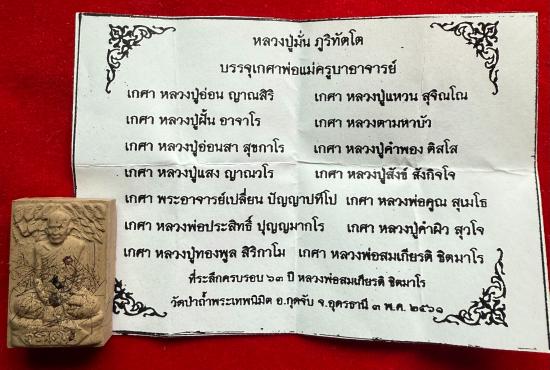 หลวงปู่มั่น ภูริทัตโต
บรรจุเกศาพ่อแม่ครูบาอาจารย์
เกศา หลวงปู่อ่อน ญาณสิริ เกศา หลวงปู่แหวน สุจิณโณ
เกศา หลวงปู่ฝั้น อาจาโร เกศา หลวงตามหาบัว
เกศา หลวงปู่อ่อนสา สุขกาโร เกศา หลวงปู่คำพอง ติสโส
เกศา หลวงปู่แสง ญาณวโร เกศา หลวงปู่สังข์ สังกิจโจ
เกศา พระอาจารย์เปลี่ยน ปัญญาปทีโป เกศา หลวงพ่อคูณ สุเมโธ
เกศา หลวงพ่อประสิทธิ์ ปุญญมากโร เกศา หลวงปู่คำผิว สุวโจ
เกศา หลวงปู่ทองพูล สิริกาโม เกศา หลวงพ่อสมเกียรติ ชิตมาโร
ที่ระลึกครบรอบ ๖๓ ปี หลวงพ่อสมเกียรติ ชิตมาโร
วัดป่าถ้ำพระเทพนิมิต อ.กุดจับ จ.อุดรธานี ๓ พ.ค. ๒๕๖๑